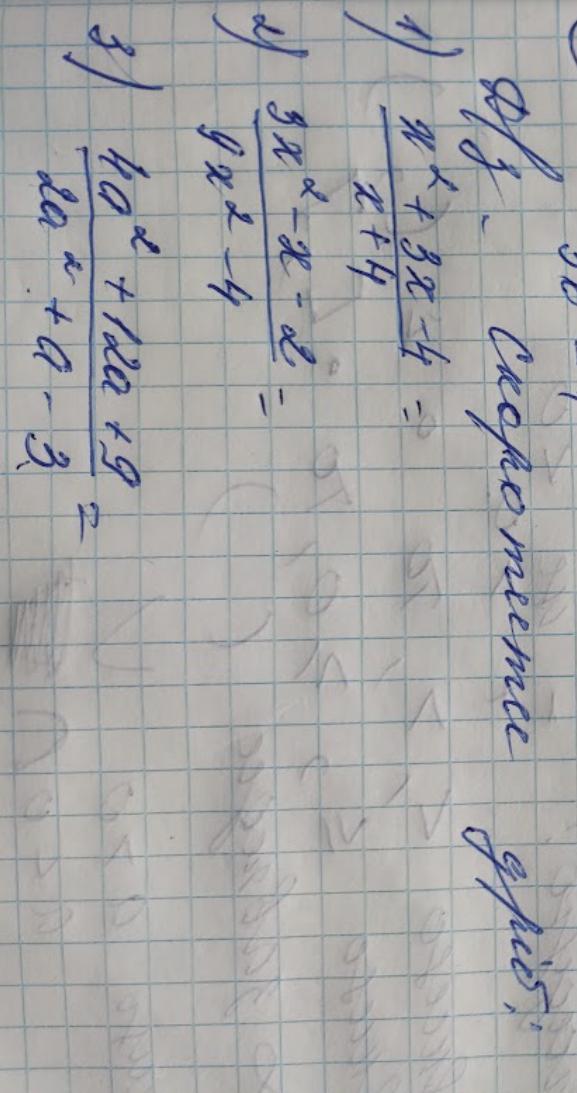 Д/з. Скоротите дріб:
1) x² + 3x - 4
x + 4
=
2) 3x² - x - 2
9x² - 4
=
3) 4a² + 12a + 9
2a² + a - 3
=